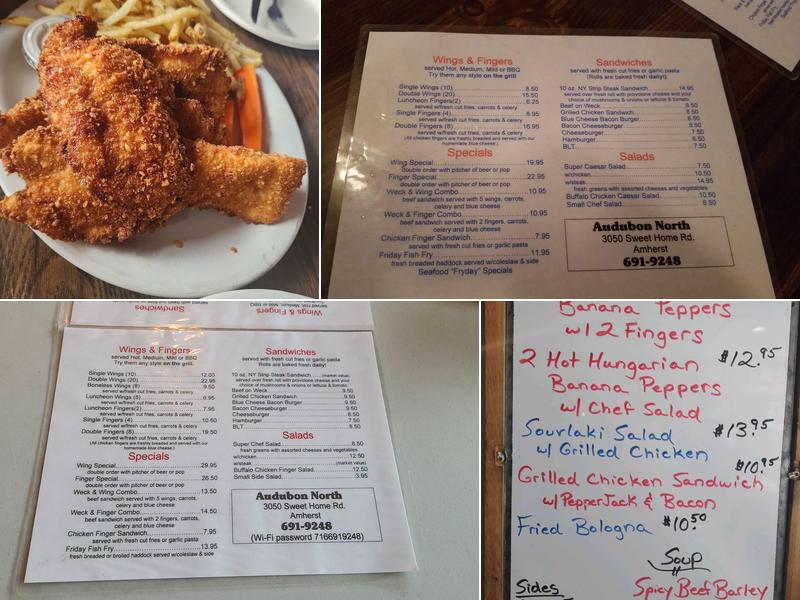 Wings & Fingers
served Hot, Medium, Mild or BBQ
Try them any style on the grill
Single Wings (10)...8.50
Double Wings (20)...15.50
Luncheon Fingers(2)...6.25
served w/fresh cut fries, carrots & celery
Single Fingers (4)...8.95
served w/fresh cut fries, carrots & celery
Double Fingers (8)...16.95
served w/fresh cut fries, carrots & celery
(All chicken fingers are freshly breaded and served with our
homemade blue cheese.)
Specials
Wing Special...19.95
double order with pitcher of beer or pop
Finger Special...22.95
double order with pitcher of beer or pop
Weck & Wing Combo...10.95
beef sandwich served with 5 wings, carrots,
celery and blue cheese
Weck & Finger Combo...10.95
beef sandwich served with 2 fingers, carrots,
celery and blue cheese
Chicken Finger Sandwich...7.95
served with fresh cut fries or garlic pasta
Friday Fish Fry...11.95
fresh breaded haddock served w/coleslaw & side
Seafood "Fryday" Specials
Sandwiches
served with fresh cut fries or garlic pasta
(Rolls are baked fresh daily!)
10 oz. NY Strip Steak Sandwich...14.95
served over fresh roll with provolone cheese and your
choice of mushrooms & onions or lettuce & tomato
Beef on Weck...8.50
Grilled Chicken Sandwich...8.50
Blue Cheese Bacon Burger...8.50
Bacon Cheeseburger...8.50
Cheeseburger...7.50
Hamburger...6.50
BLT...7.50
Salads
Super Caesar Salad...7.50
w/chicken...10.50
w/steak...14.95
fresh greens with assorted cheeses and vegetables
Buffalo Chicken Caesar Salad...10.50
Small Chef Salad...6.50
Audubon North
3050 Sweet Home Rd.
Amherst
691-9248
Wings & Fingers
Sandwiches
Wings & Fingers
served Hot, Medium, Mild or BBQ
Try them any style on the grill.
Single Wings (10)...12.00
Double Wings (20)...22.95
Boneless Wings (8)...9.50
served w/fresh cut fries, carrots & celery
Luncheon Wings (5)...6.95
served w/fresh cut fries, carrots & celery
Luncheon Fingers(2)...7.95
served w/fresh cut fries, carrots & celery
Single Fingers (4)...10.50
served w/fresh cut fries, carrots & celery
Double Fingers (8)...19.50
served w/fresh cut fries, carrots & celery
(All chicken fingers are freshly breaded and served with our
homemade blue cheese.)
Specials
Wing Special...29.95
double order with pitcher of beer or pop
Finger Special...26.50
double order with pitcher of beer or pop
Weck & Wing Combo...13.50
beef sandwich served with 5 wings, carrots,
celery and blue cheese
Weck & Finger Combo...14.50
beef sandwich served with 2 fingers, carrots,
celery and blue cheese
Chicken Finger Sandwich...7.95
served with fresh cut fries or garlic pasta
Friday Fish Fry...13.95
fresh breaded or broiled haddock served w/coleslaw & side
Sandwiches
served with fresh cut fries or garlic pasta
(Rolls are baked fresh daily!
10 oz. NY Strip Steak Sandwich...(market value)
served over fresh roll with provolone cheese and your
choice of mushrooms & onions or lettuce & tomato
Beef on Weck...9.50
Grilled Chicken Sandwich...9.50
Blue Cheese Bacon Burger...9.50
Bacon Cheeseburger...9.50
Cheeseburger...8.50
Hamburger...7.50
BLT...9.50
Salads
Super Chef Salad...8.50
fresh greens with assorted cheeses and vegetables
w/chicken...12.50
w/steak...(market value)
Buffalo Chicken Finger Salad...12.50
Small Side Salad...3.95
Audubon North
3050 Sweet Home Rd.
Amherst
691-9248
(Wi-Fi password 7166919248)
Banana Peppers
w/2 Fingers
2 Hot Hungarian $12.95
Banana Peppers
w/ Chef Salad
Sourlaki Salad $13.95
w/ Grilled Chicken
$10.95
Grilled Chicken Sandwich
w/PepperJack & Bacon
Fried Bologna $10.50
Soup
Sides
Spicy Beef Barley